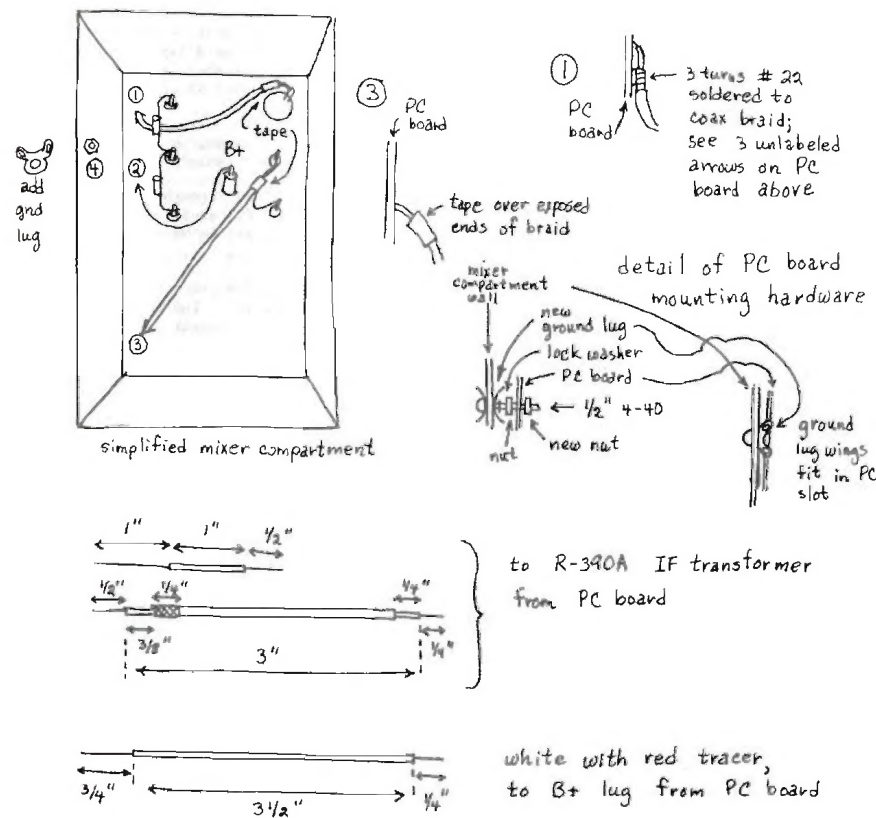 ①
②
③
④
tape
B+
add
gnd
lug
simplified mixer compartment
③
PC
board
tape over exposed
ends of braid
①
PC
board
3 turns # 22
soldered to
coax braid;
see 3 unlabeled
arrows on PC
board above
detail of PC board
mounting hardware
mixer
compartment
wall
new
ground lug
lock washer
PC board
1/2" 4-40
nut
new nut
ground
lug wings
fit in PC
slot
1" 1" 1/2"
1/2" 1/4" 1/4"
3/8" 1/4"
3"
to R-390A IF transformer
from PC board
3/4" 3 1/2" 1/4"
white with red tracer,
to B+ lug from PC board